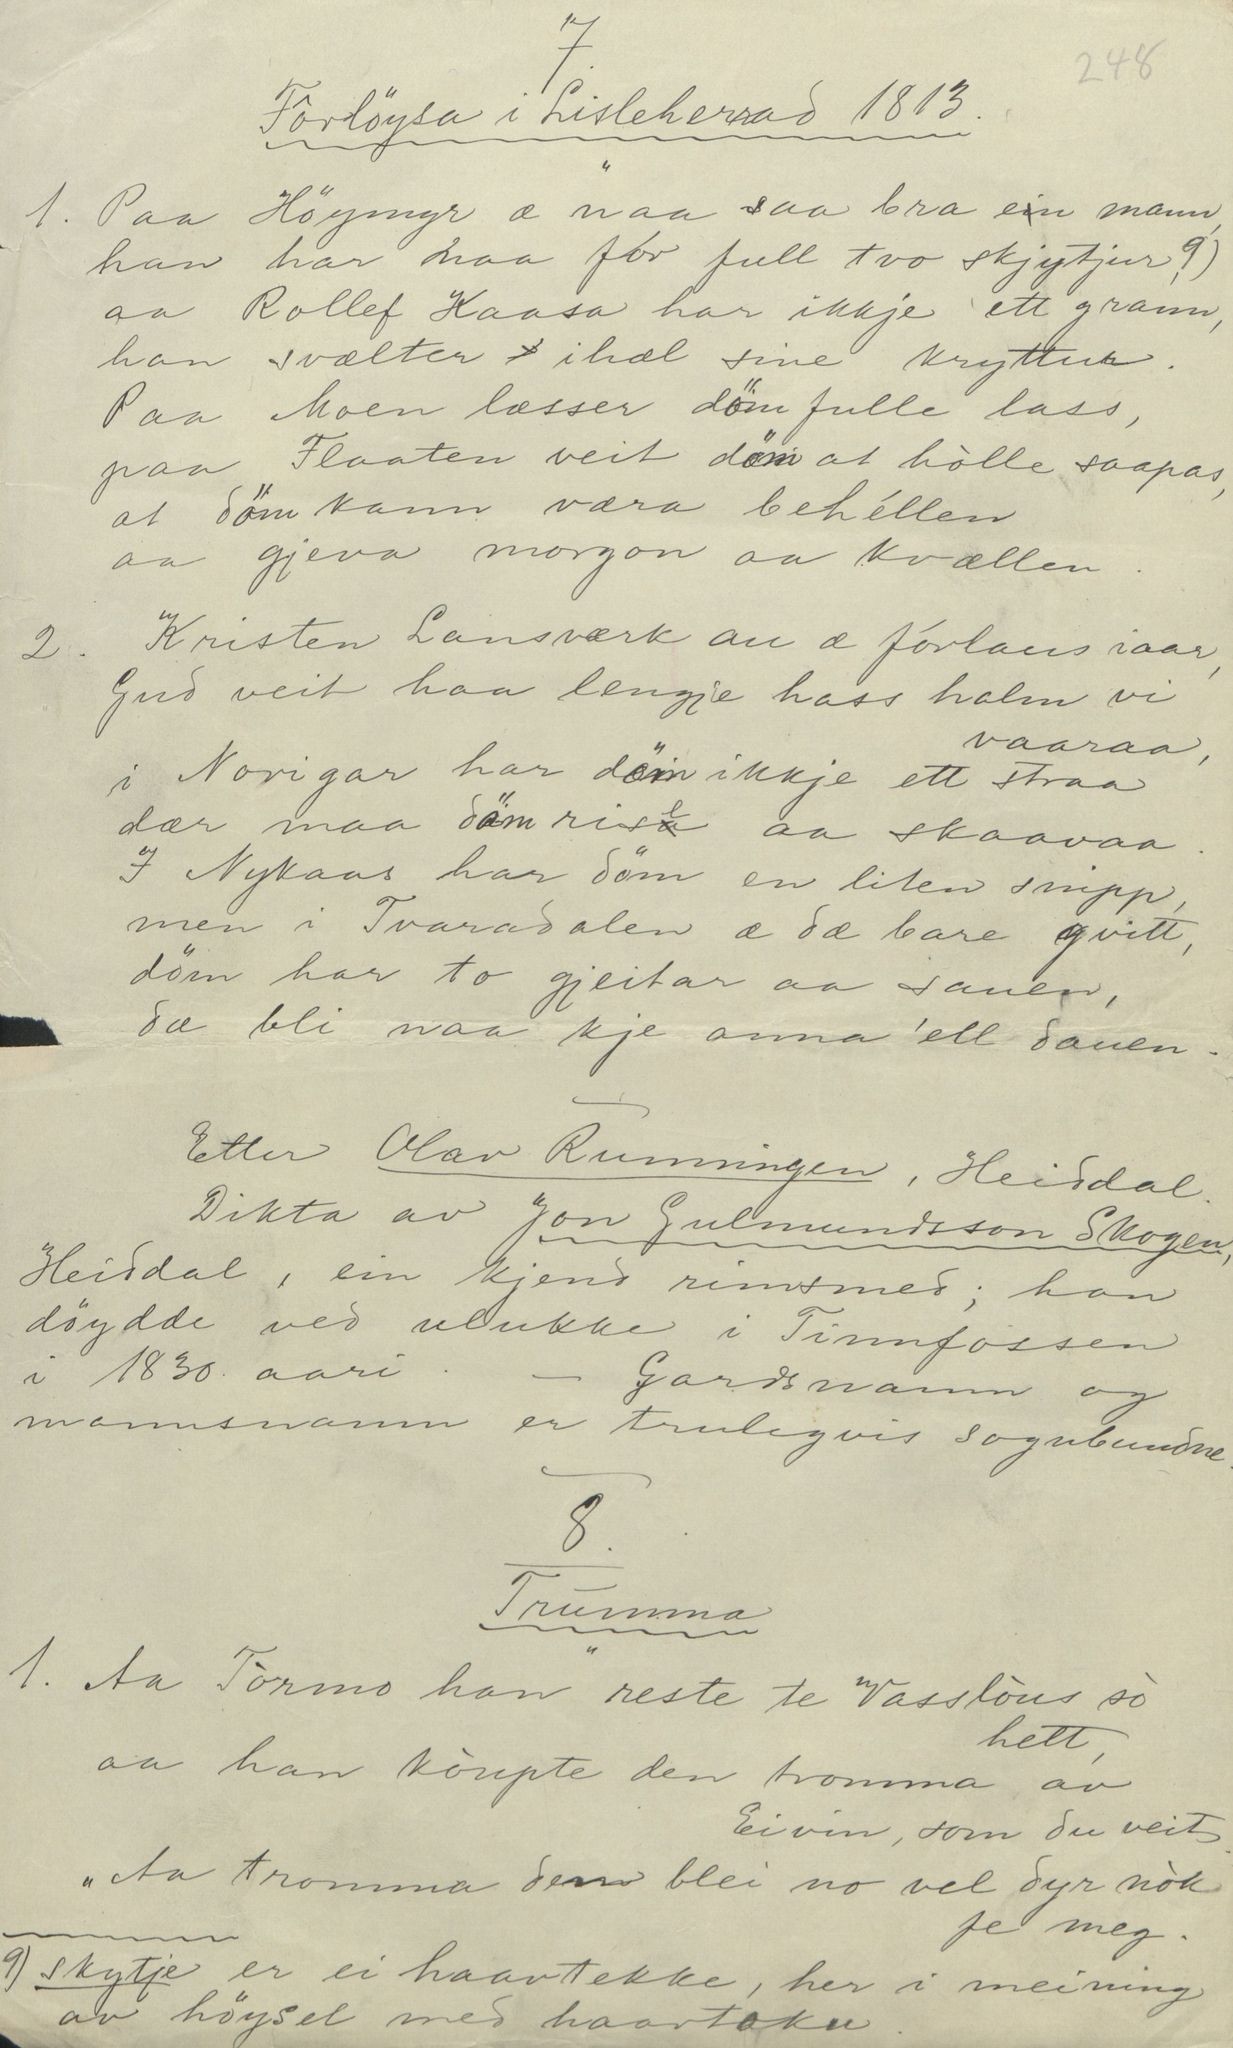 248
7.
Fôrlöysa i Lisleherad 1813.
1. Paa Höymyr æ naa saa bra ein mann,
han har naa fór full tvo skjytjur, 9)
aa Rollef Kaasa har ikkje ett grann,
han svælter ihæl sine kryttur.
Paa Moen læsser döm fulle lass,
paa Flaaten veit döm at hòlle saapas,
at döm kann væra behéllen
aa gjeva morgon aa kvællen.
2. Kristen Lansværk au æ fórlaus iaar,
Gud veit haa lengje hass halm vi
vaaraa,
i Norigar har döm ikkje ett straa
dær maa döm risle aa skaavaa.
I Nykaas har döm en liten snipp,
men i Tvaradalen æ dæ bare qvitt,
döm har to gjeitar aa sauen,
dæ bli naa kje anna 'ell dauen.
Etter Olav Rumningen, Heiddal.
Dikta av Jon Gulmundsson Skogen,
Heiddal, ein kjend rimsmed; han
döydde ved ulukke i Tinnfossen
i 1830. aari. — Gardsnamn og
mannsnamn er trulegvis sognbundne.
8.
Trumma
1. Aa Tòrmo han reste te Vasslòus sò
hett,
aa han kòupte den tromma av
Eivin, som du veit.
„Aa tromma den blei no vel dyr nòk
fe meg.
9) skytje er ei haavtekke, her i meining
av höysel med haavtaku.